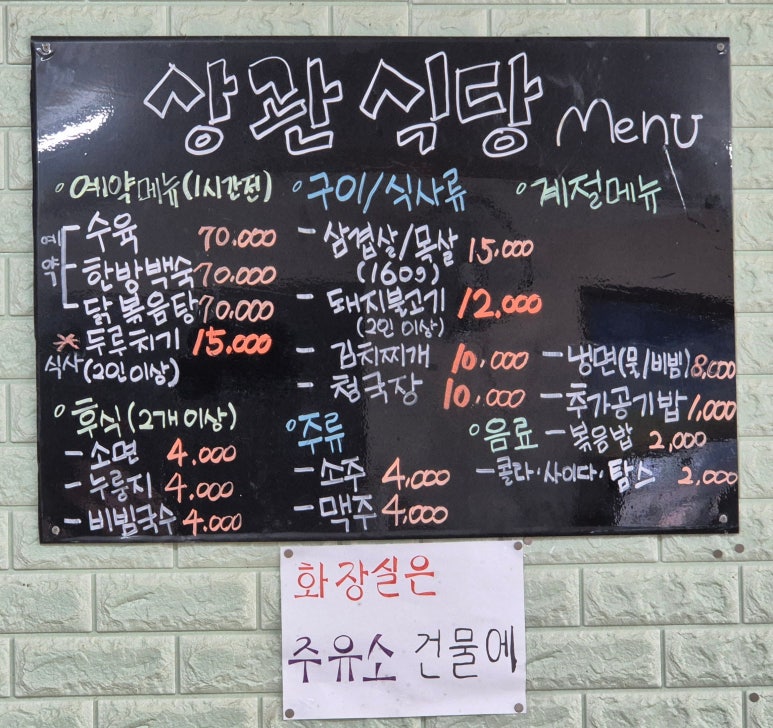 상관식당 Menu
◦예약메뉴(1시간전)
예약
수육 70.000
한방백숙 70.000
닭볶음탕 70.000
* 두루치기 15.000
식사 (2인이상)
◦후식(2개이상)
- 소면 4.000
- 누룽지 4.000
- 비빔국수 4.000
◦구이/식사류
- 삼겹살/목살 15,000
(160g)
- 돼지불고기 12.000
(2인이상)
- 김치찌개 10.000
- 청국장 10.000
◦주류
- 소주 4,000
- 맥주 4,000
◦계절메뉴
- 냉면(물/비빔) 8,000
- 추가공기밥 1,000
- 볶음밥 2,000
◦음료
- 콜라·사이다·탐스 2,000
화장실은
주유소 건물에